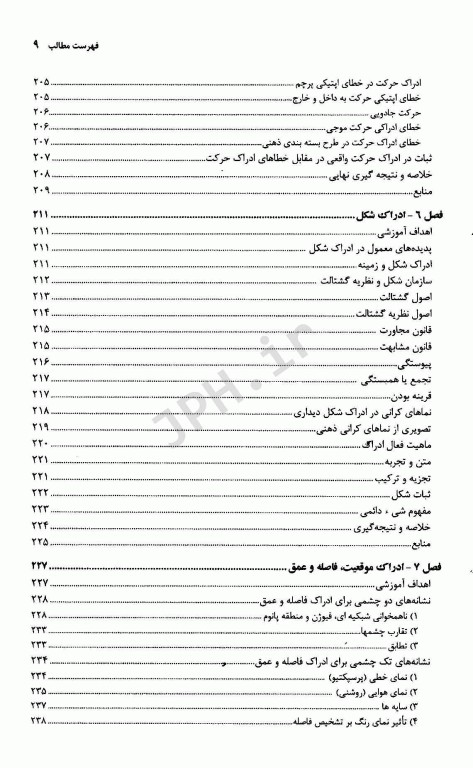 فهرست مطالب ۹
ادراک حرکت در خطای اپتیکی پرچم ۲۰۵
خطای اپتیکی حرکت به داخل و خارج ۲۰۵
حرکت جادویی ۲۰۶
خطای ادراکی حرکت موجی ۲۰۶
خطای ادراک حرکت در طرح بسته بندی ذهنی ۲۰۷
ثبات در ادراک حرکت واقعی در مقابل خطاهای ادراک حرکت ۲۰۷
خلاصه و نتیجه گیری نهایی ۲۰۸
منابع ۲۰۹
فصل ۶- ادراک شکل ۲۱۱
اهداف آموزشی ۲۱۱
پدیده‌های معمول در ادراک شکل ۲۱۱
ادراک شکل و زمینه ۲۱۱
سازمان شکل و نظریه گشتالت ۲۱۲
اصول گشتالت ۲۱۳
اصول نظریه گشتالت ۲۱۴
قانون مجاورت ۲۱۵
قانون مشابهت ۲۱۵
پیوستگی ۲۱۶
تجمع یا همبستگی ۲۱۷
قرینه بودن ۲۱۷
نماهای کرانی در ادراک شکل دیداری ۲۱۸
تصویری از نماهای کرانی ذهنی ۲۱۹
ماهیت فعال ادراک ۲۲۰
متن و تجربه ۲۲۱
تجزیه و ترکیب ۲۲۱
ثبات شکل ۲۲۲
مفهوم شی ، دائمی ۲۲۳
خلاصه و نتیجه‌گیری ۲۲۴
منابع ۲۲۵
فصل ۷- ادراک موقعیت، فاصله و عمق ۲۲۷
اهداف آموزشی ۲۲۷
نشانه‌های دو چشمی برای ادراک فاصله و عمق ۲۲۸
۱) ناهمخوانی شبکیه ای، فیوژن و منطقه پانوم ۲۲۸
۲) تقارب چشمها ۲۳۳
۳) تطابق ۲۳۳
نشانه‌های تک چشمی برای ادراک فاصله و عمق ۲۳۴
۱) نمای خطی (پرسپکتیو) ۲۳۴
۲) نمای هوایی (روشنی) ۲۳۵
۳) سایه ها ۲۳۷
۴) تأثیر نمای رنگ بر تشخیص فاصله ۲۳۸
JPH.ir